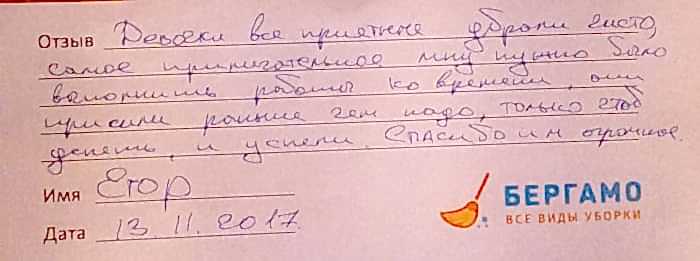 Отзыв Девочки все приятные убрали чисто,
самое примечательное мну нужно было
выполнить работы ко времени, они
приехали раньше чем надо, только чтоб
успеть, и успели. Спасибо им огромное.
Имя Егор
Дата 13.11.2017.
БЕРГАМО
ВСЕ ВИДЫ УБОРКИ